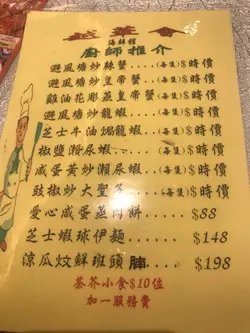 越華會
海鮮館
廚師推介
避風塘炒辣蟹....(每隻)$時價
避風塘炒皇帝蟹...(每隻)$時價
雞油花彫蒸皇帝蟹.(每隻)$時價
避風塘炒龍蝦....(每隻)$時價
芝士牛油焗龍蝦...(每隻)$時價
椒鹽瀨尿蝦......(每隻)$時價
咸蛋黃炒瀨尿蝦...(每隻)$時價
豉椒炒大聖子....(每隻)$時價
愛心咸蛋蒸肉餅.......$88
芝士蝦球伊麵........$148
涼瓜炆鮮班頭腩......$198
茶芥小食$10位
加一服務費